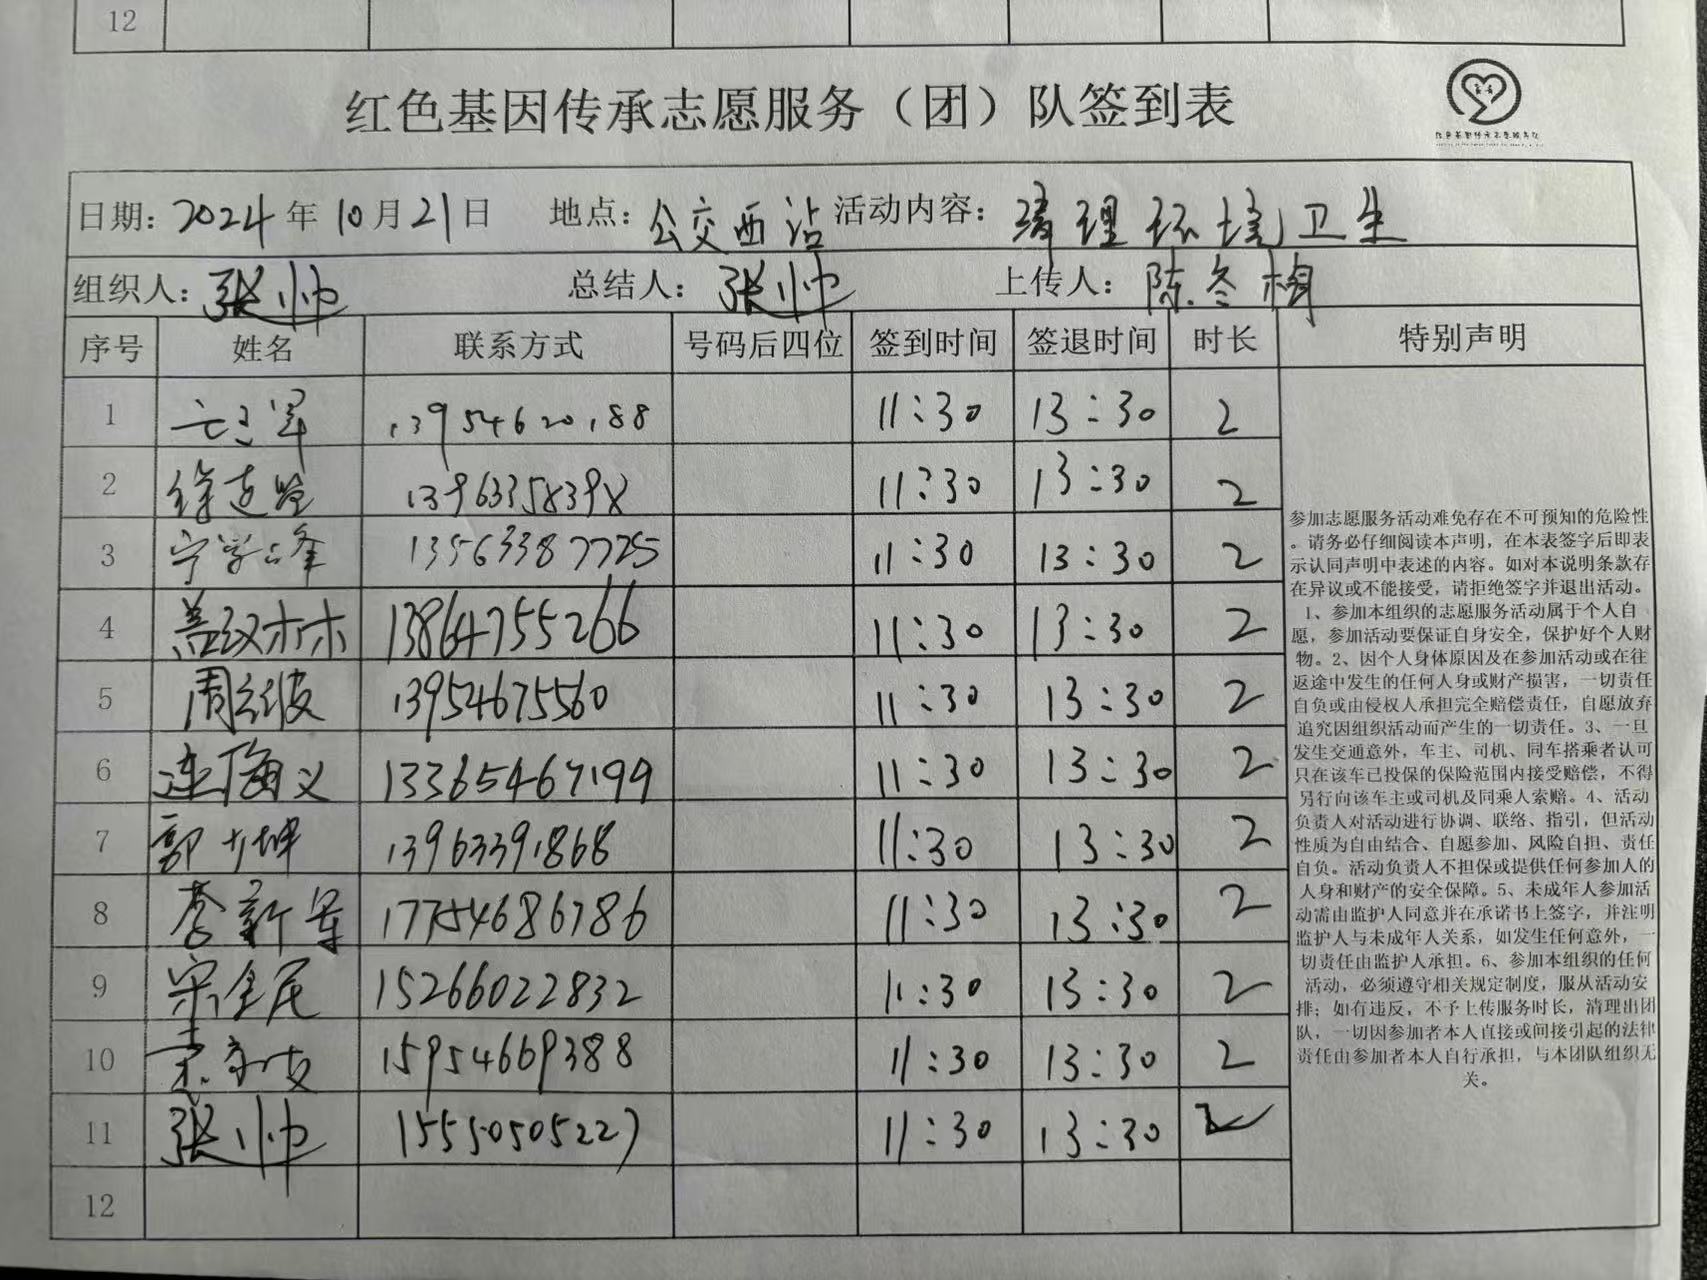 12
红色基因传承志愿服务（团）队签到表
日期：2024年10月21日 地点：公交西站 活动内容：清理环境卫生
组织人：张帅 总结人：张帅 上传人：陈冬梅
序号 姓名 联系方式 号码后四位 签到时间 签退时间 时长 特别声明
1 13954620188 11:30 13:30 2
2 13963358398 11:30 13:30 2
3 宁学峰 13563387725 11:30 13:30 2
4 盖汉林 13864755266 11:30 13:30 2
5 周波 13954675560 11:30 13:30 2
6 连海义 13365467199 11:30 13:30 2
7 郭坤 13963391868 11:30 13:30 2
8 李新军 17754686786 11:30 13:30 2
9 宋金 15266022832 11:30 13:30 2
10 15954669388 11:30 13:30 2
11 张帅 15550505227 11:30 13:30 2
12
参加志愿服务活动难免存在不可预知的危险性
。请务必仔细阅读本声明，在本表签字后即表
示认同声明中表述的内容。如对本说明条款存
在异议或不能接受，请拒绝签字并退出活动。
1、参加本组织的志愿服务活动属于个人自
愿，参加活动要保证自身安全，保护好个人财
物。2、因个人身体原因及在参加活动或在往
返途中发生的任何人身或财产损害，一切责任
自负或由侵权人承担完全赔偿责任，自愿放弃
追究因组织活动而产生的一切责任。3、一旦
发生交通意外，车主、司机、同车搭乘者认可
只在该车已投保的保险范围内接受赔偿，不得
另行向该车主或司机及同乘人索赔。4、活动
负责人对活动进行协调、联络、指引，但活动
性质为自由结合、自愿参加、风险自担、责任
自负。活动负责人不担保或提供任何参加人的
人身和财产的安全保障。5、未成年人参加活
动需由监护人同意并在承诺书上签字，并注明
监护人与未成年人关系，如发生任何意外，一
切责任由监护人承担。6、参加本组织的任何
活动，必须遵守相关规定制度，服从活动安
排；如有违反，不予上传服务时长，清理出团
队，一切因参加者本人直接或间接引起的法律
责任由参加者本人自行承担，与本团队组织无
关。